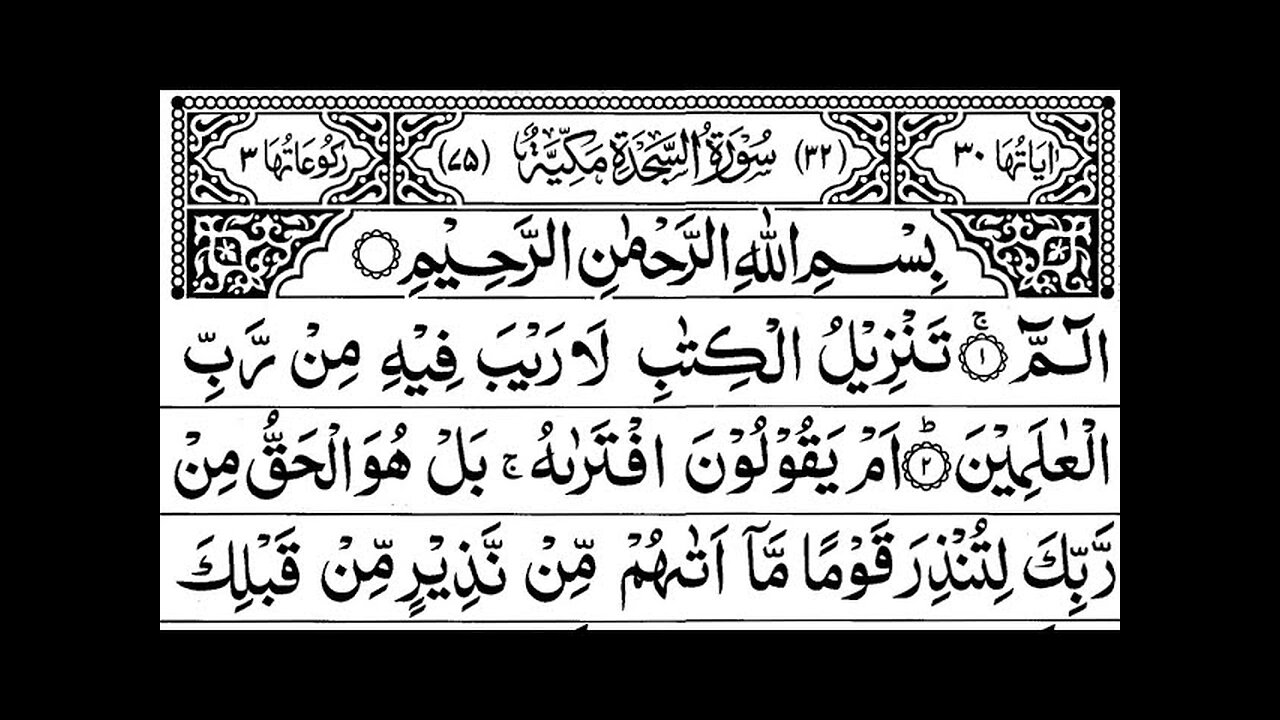 اٰيَاتُهَا ٣٠ (٣٢) سُوْرَةُ السَّجْدَةِ مَكِّيَّةٌ (٧٥) رُكُوْعَاتُهَا ٣
بِسْمِ اللّٰهِ الرَّحْمٰنِ الرَّحِيْمِ
الٓـمّٓ ۚ‏﴿١﴾ تَنْزِيْلُ الْكِتٰبِ لَا رَيْبَ فِيْهِ مِنْ رَّبِّ
الْعٰلَمِيْنَ ؕ‏﴿٢﴾ اَمْ يَقُوْلُوْنَ افْتَرٰىهُ ۚ بَلْ هُوَ الْحَقُّ مِنْ
رَّبِّكَ لِتُنْذِرَ قَوْمًا مَّاۤ اَتٰىهُمْ مِّنْ نَّذِيْرٍ مِّنْ قَبْلِكَ